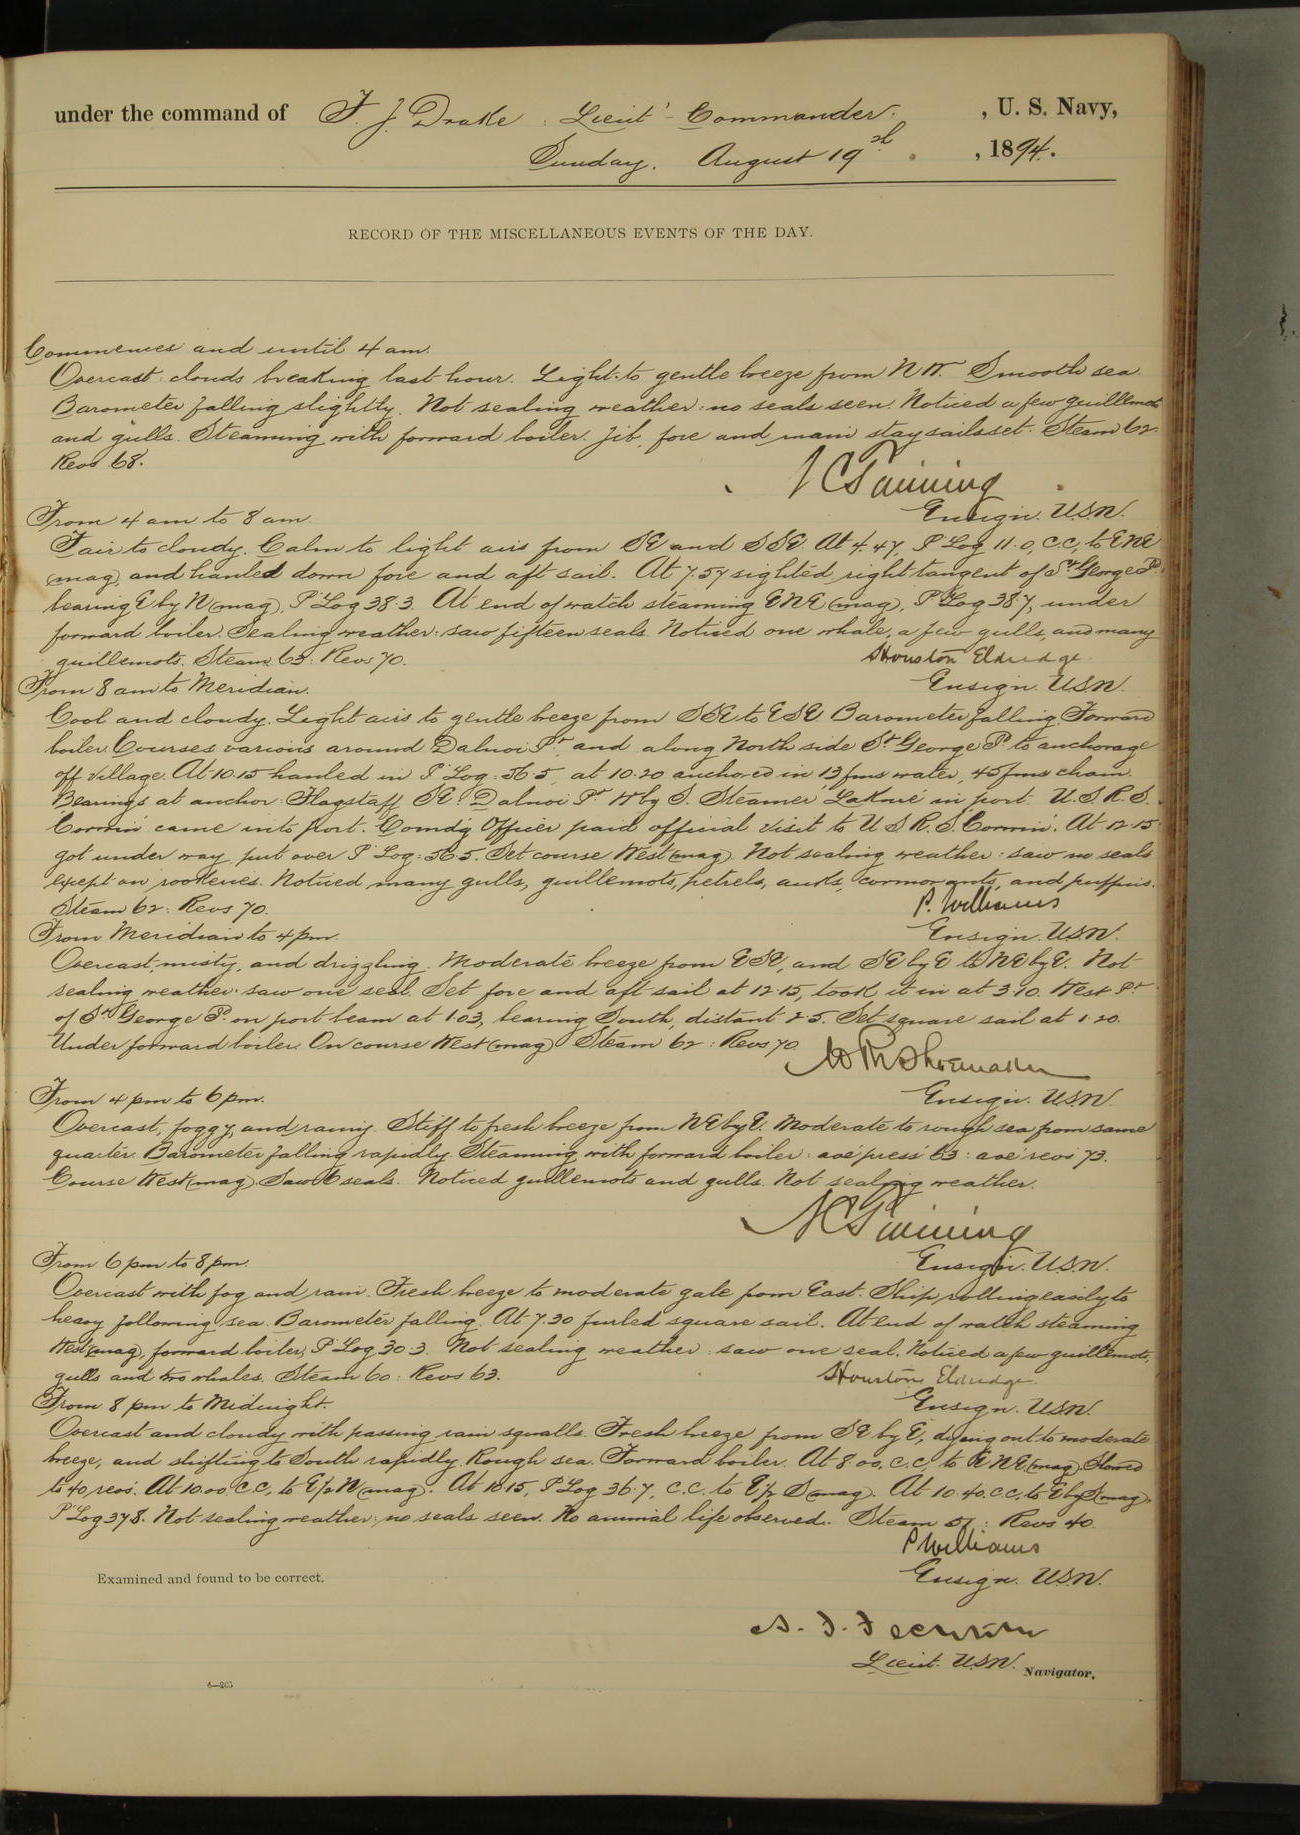 under the command of F. J. Drake Lieut' - Commander. , U. S. Navy,
Sunday. August 19th. , 1894.
RECORD OF THE MISCELLANEOUS EVENTS OF THE DAY.
Commences and until 4 am.
Overcast: clouds breaking last hour. Light to gentle breeze from NW. Smooth sea.
Barometer falling slightly. Not sealing weather: no seals seen. Noticed a few guillemots
and gulls. Steaming with forward boiler. Jib, fore and main staysails set. Steam 62.
Revs 68.
Ensign. U.S.N.
From 4 am to 8 am.
Fair to cloudy. Calm to light airs from SE and SSE. At 4.47, P'Log 11.0, C.C, to ENE
(mag), and hauled down fore and aft sail. At 7.57 sighted right tangent of St George Id.
bearing E by N (mag), P'Log 38.3. At end of watch steaming ENE (mag), P'Log 38.7, under
forward boiler. Sealing weather: saw fifteen seals. Noticed one whale, a few gulls, and many
guillemots. Steam 63: Revs 70.
Houston Eldredge.
From 8 am to Meridian.
Ensign. U.S.N.
Cool and cloudy. Light airs to gentle breeze from SSE to ESE. Barometer falling. Forward
boiler. Courses various around Dalnoi Pt. and along North side St George Id to anchorage
off village. At 10.15 hauled in P'Log: 56.5, at 10.20 anchored in 13 fms water, 45 fms chain.
Bearings at anchor: Flagstaff, SE: Dalnoi Pt. W by S. Steamer 'Lakme' in port. U.S.R.S.
'Corwin' came into port. Comd'g Officer paid official visit to U.S.R.S. Corwin'. At 12.15
got under way, put over P'Log: 56.5. Set course West (mag). Not sealing weather: saw no seals
except on rookeries. Noticed many gulls, guillemots, petrels, auks, cormorants, and puffins.
Steam 62: Revs 70.
P. Williams
From Meridian to 4 pm.
Ensign. U.S.N.
Overcast, misty, and drizzling. Moderate breeze from ESE, and SE by E to NE by E. Not
sealing weather: saw one seal. Set fore and aft sail at 12.15, took it in at 3.10. West Pt.
of St George Id on port beam at 1.03, bearing South, distant 2.5. Set square sail at 1.20.
Under forward boiler. On course West (mag) Steam 62: Revs 70
W R Shoemaker
From 4 pm to 6 pm.
Ensign. U.S.N.
Overcast, foggy, and rainy. Stiff to fresh breeze from NE by E. Moderate to rough sea from same
quarter. Barometer falling rapidly. Steaming with forward boiler: ave press' 63: ave' revs 73.
Course West (mag) Saw 6 seals. Noticed guillemots and gulls. Not sealing weather.
Ensign. U.S.N.
From 6 pm to 8 pm.
Overcast with fog and rain. Fresh breeze to moderate gale from East. Ship rolling easily to
heavy following sea. Barometer falling. At 7.30 furled square sail. At end of watch steaming
West (mag), forward boiler, P'Log 30.3. Not sealing weather: saw one seal. Noticed a few guillemots,
gulls and two whales. Steam 60: Revs 63.
Houston Eldredge.
From 8 pm to Midnight.
Ensign. U.S.N.
Overcast and cloudy with passing rain squalls. Fresh breeze from SE by E, dying out to moderate
breeze, and shifting to South rapidly. Rough sea. Forward boiler. At 8.00, C.C, to ENE (mag). Slowed
to 40 revs. At 10.00 C.C, to E½N (mag). At 10.15, P'Log 36.7, C.C. to E½S (mag). At 10.40, C.C, to E by S (mag),
P'Log 37.8. Not sealing weather; no seals seen. No animal life observed. Steam 57: Revs 40.
P Williams
Ensign. U.S.N.
Examined and found to be correct.
Lieut. U.S.N. Navigator.